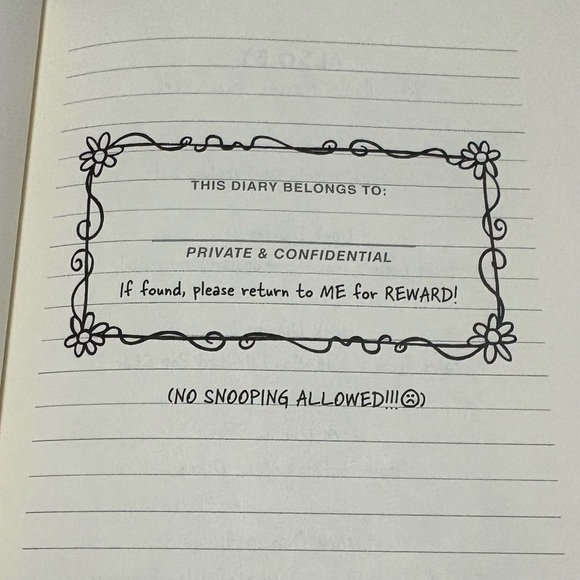 THIS DIARY BELONGS TO:
PRIVATE & CONFIDENTIAL
If found, please return to ME for REWARD!
(NO SNOOPING ALLOWED!!!☹)